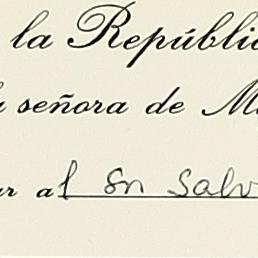 la Repúblic
a señora de M
ar al Sn Salv